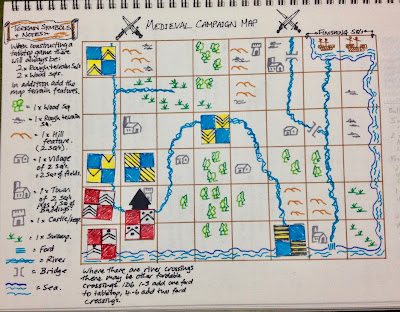 MEDIEVAL CAMPAIGN MAP
TERRAIN SYMBOLS
+ NOTES:-
When constructing a
tabletop game there
will always be:-
2 x Rough terrain Sqs
2 x Wood sqs.
In addition add the
map terrain features.
= 1 x Wood Sq
= 1 x Rough terrain
Sq.
= 1 x Hill
feature.
(2 sqs).
= 1 x Village
of 2 sqs
+ 2 sq of fields.
= 1 x Town
of 2 sqs
= 1 x Castle/keep
= 1 x Swamp.
= Ford
= River
= Bridge
= Sea.
FINISHING SQS
Where there are river crossings
there may be other fordable
crossings. 1D6 1-3 add one ford
to tabletop, 4-6 add two ford
crossings.